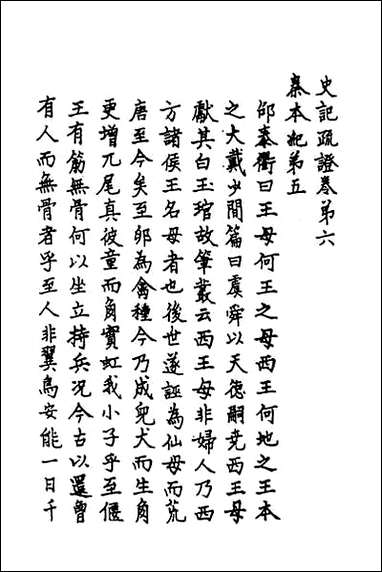 史記疏證卷第六
秦本紀第五
邰泰衢曰王母何王之母西王何地之王本
之大戴少間篇曰虞舜以天德嗣堯西王母
獻其白玉琯故筆叢云西王母非婦人乃西
方諸侯王名母者也後世遂誣為仙母而荒
唐至今矣至卵為禽種今乃成兒犬而生角
更增兀尾真彼童而角實虹我小子乎至偃
王有筋無骨何以坐立持兵況今古以還曾
有人而無骨者乎至人非翼鳥安能一日千